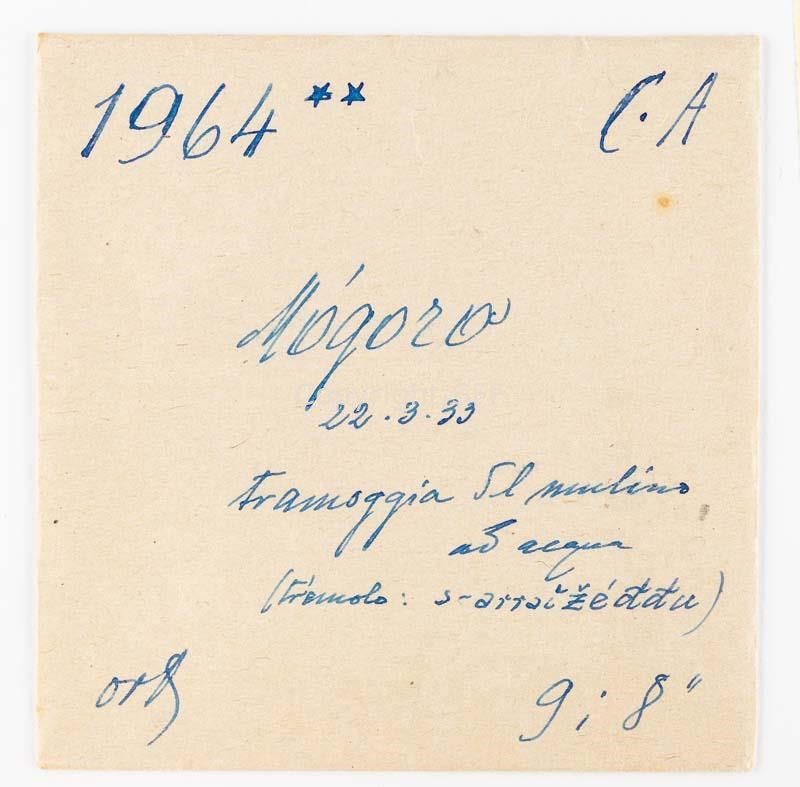 1964 ** C. A
Mógoro
22.3.33
tramoggia dl mulino
ad acqua
(trémolo: s-arraižéđđu)
9; 8"